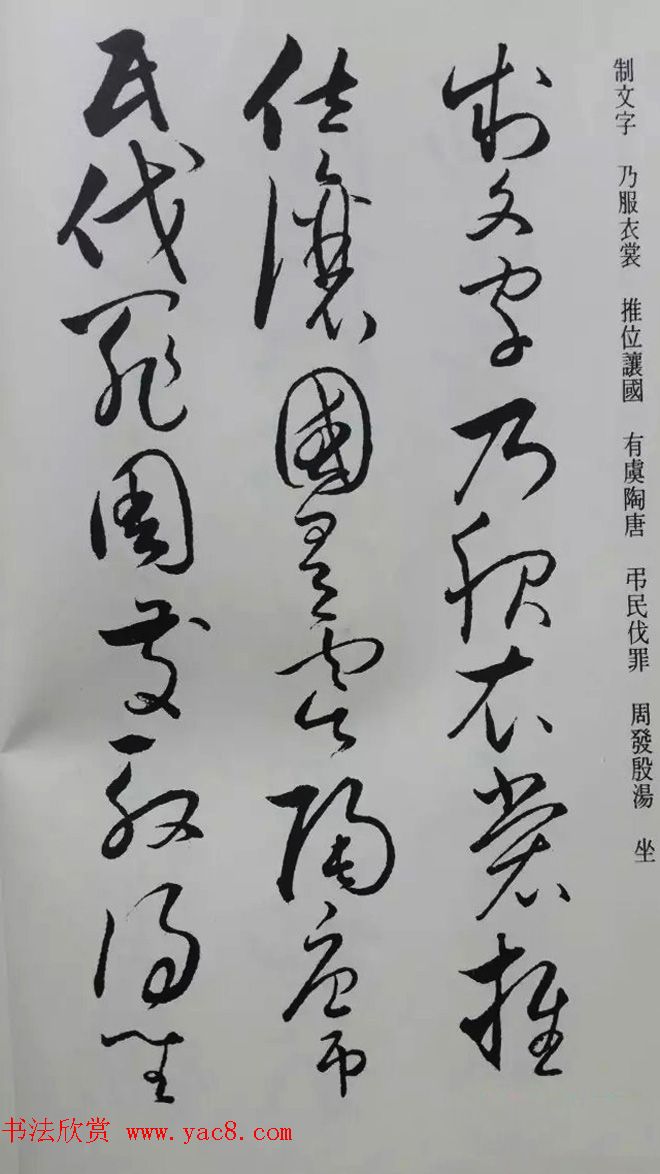 制文字 乃服衣裳 推位讓國 有虞陶唐 弔民伐罪 周發殷湯 坐
制文字乃服衣裳推
位讓國有虞陶唐弔
民伐罪周發殷湯坐
书法欣赏 www.yac8.com